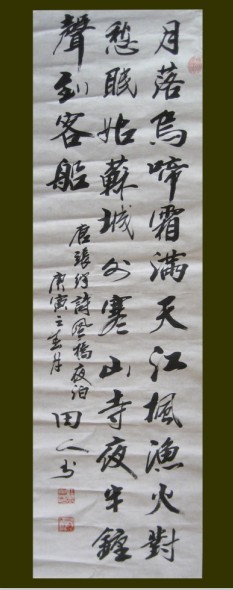 月落烏啼霜滿天江楓漁火對
愁眠姑蘇城外寒山寺夜半鐘
聲到客船
唐張繼詩楓橋夜泊
庚寅之春月
田人書